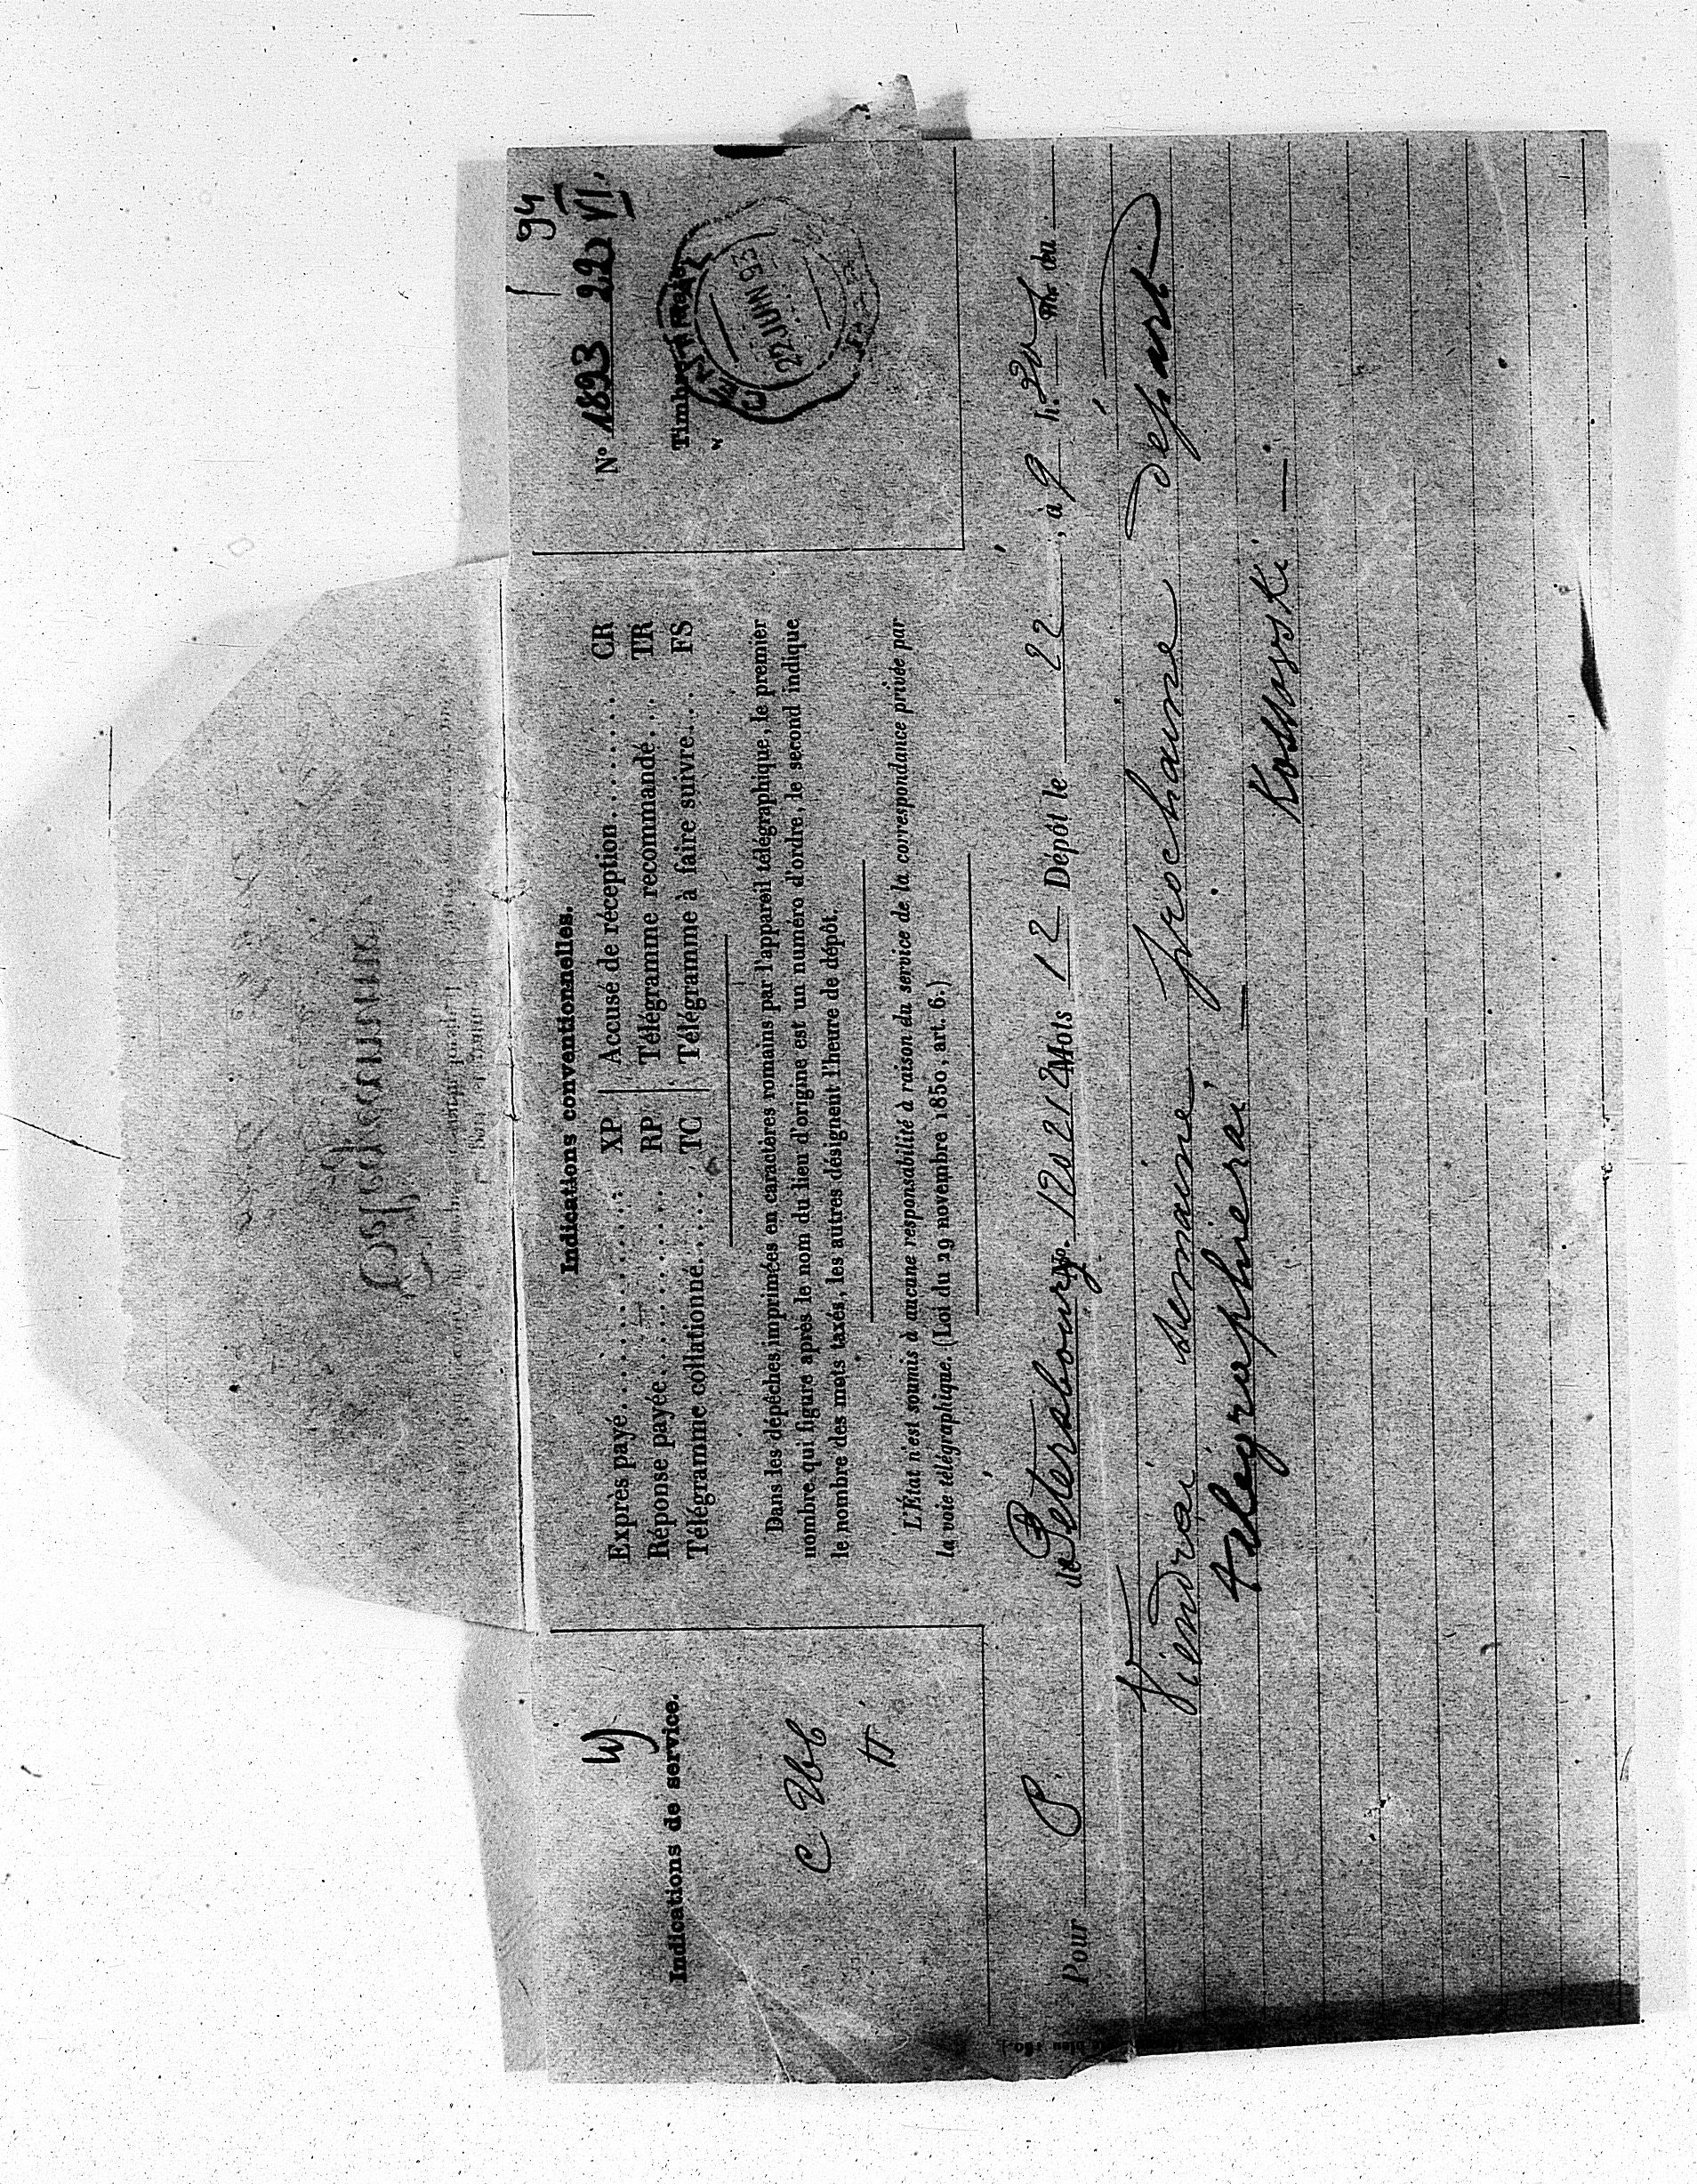 94
N° 1893 22 VI.
W)
Indications de service.
C
Indications conventionnelles.
Exprès payé........ XP
Réponse payée........ RP
Télégramme collationné...... TC
Accusé de réception.......... CR
Télégramme recommandé.... TR
Télégramme à faire suivre.... FS
Dans les dépêches imprimées en caractères romains par l'appareil télégraphique, le premier
nombre qui figure après le nom du lieu d'origine est un numéro d'ordre, le second indique
le nombre des mots taxés, les autres désignent l'heure de dépôt.
L'État n'est soumis à aucune responsabilité à raison du service de la correspondance privée par
la voie télégraphique. (Loi du 29 novembre 1850, art. 6.)
22 JUIN 93
Pour P. de Petersbourg N°. Mots 12 Dépôt le 22, à 9 h. 20 m. du
Viendrai semaine prochaine départ
télégraphierai
Kossovski